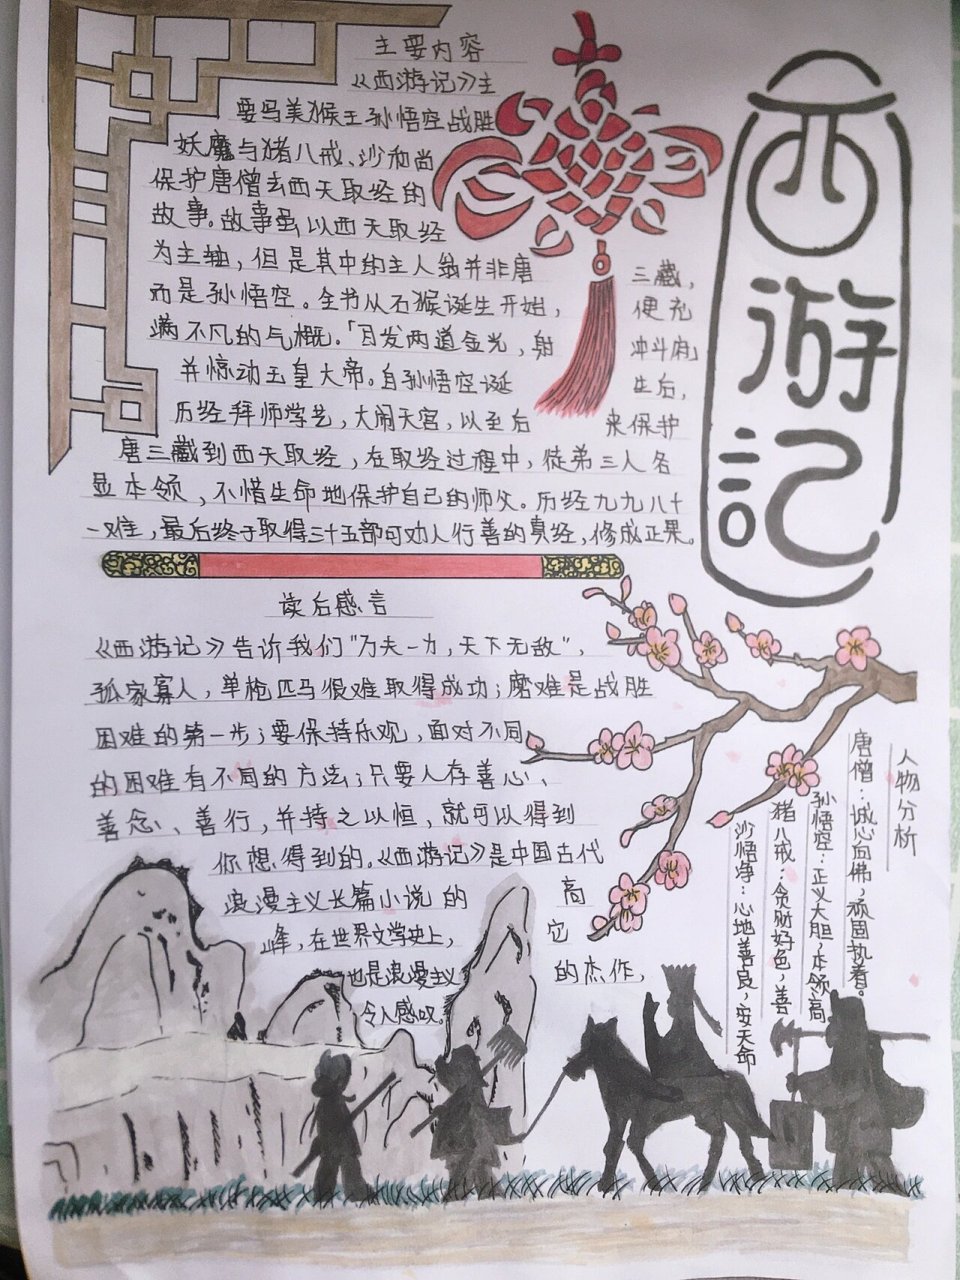 西游记
主要内容
《西游记》主
要写美猴王孙悟空战胜
妖魔与猪八戒、沙和尚
保护唐僧去西天取经的
故事。故事虽以西天取经
为主轴，但是其中的主人翁并非唐三藏，
而是孙悟空。全书从石猴诞生开始，便充
满不凡的气概。「目发两道金光，射冲斗府」
并惊动玉皇大帝。自孙悟空诞生后，
历经拜师学艺，大闹天宫，以至后来保护
唐三藏到西天取经，在取经过程中，徒弟三人各
显本领，不惜生命地保护自己的师父。历经九九八十
一难，最后终于取得三十五部可劝人行善的真经，修成正果。
读后感言
《西游记》告诉我们"万夫一力，天下无敌"，
孤家寡人，单枪匹马很难取得成功；磨难是战胜
困难的第一步；要保持乐观，面对不同
的困难有不同的方法；只要人存善心、
善念、善行，并持之以恒，就可以得到
你想得到的。《西游记》是中国古代
浪漫主义长篇小说的高
峰，在世界文学史上，它
也是浪漫主义的杰作，
令人感叹。
人物分析
唐僧：诚心向佛，顽固执着。
孙悟空：正义大胆，本领高
猪八戒：贪财好色，善
沙悟净：心地善良，安天命